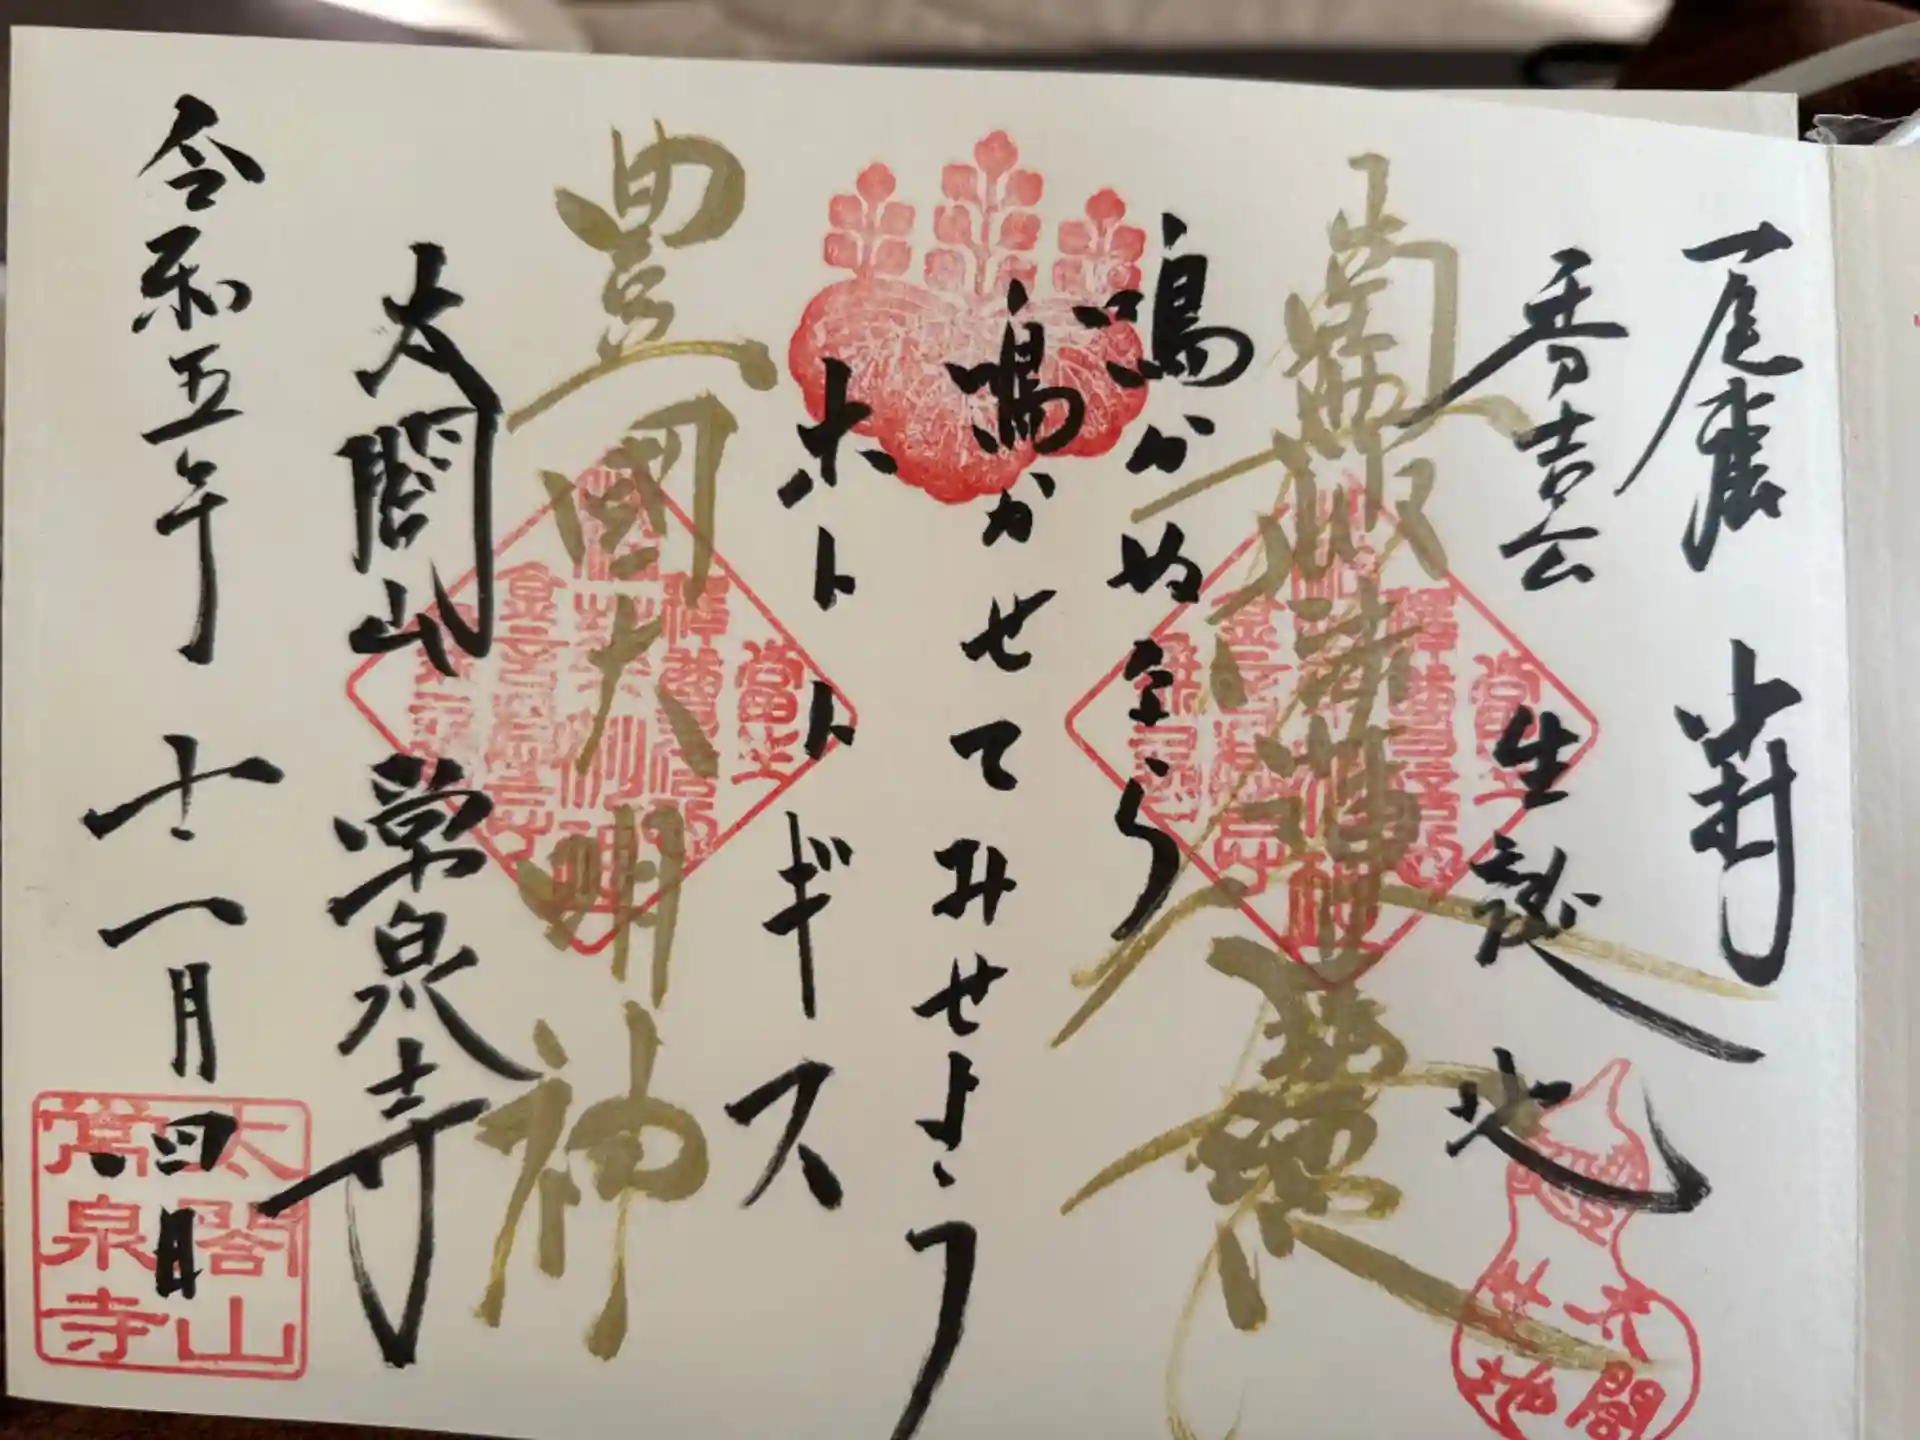 尾張 中村
秀吉公 生誕 地
南無妙法蓮華経
鳴かぬなら
鳴かせてみせよう
ホトトギス
豊国大明神
太閤山 常泉寺
令和五年 十一月 四日
太閤山
常泉寺
太閤